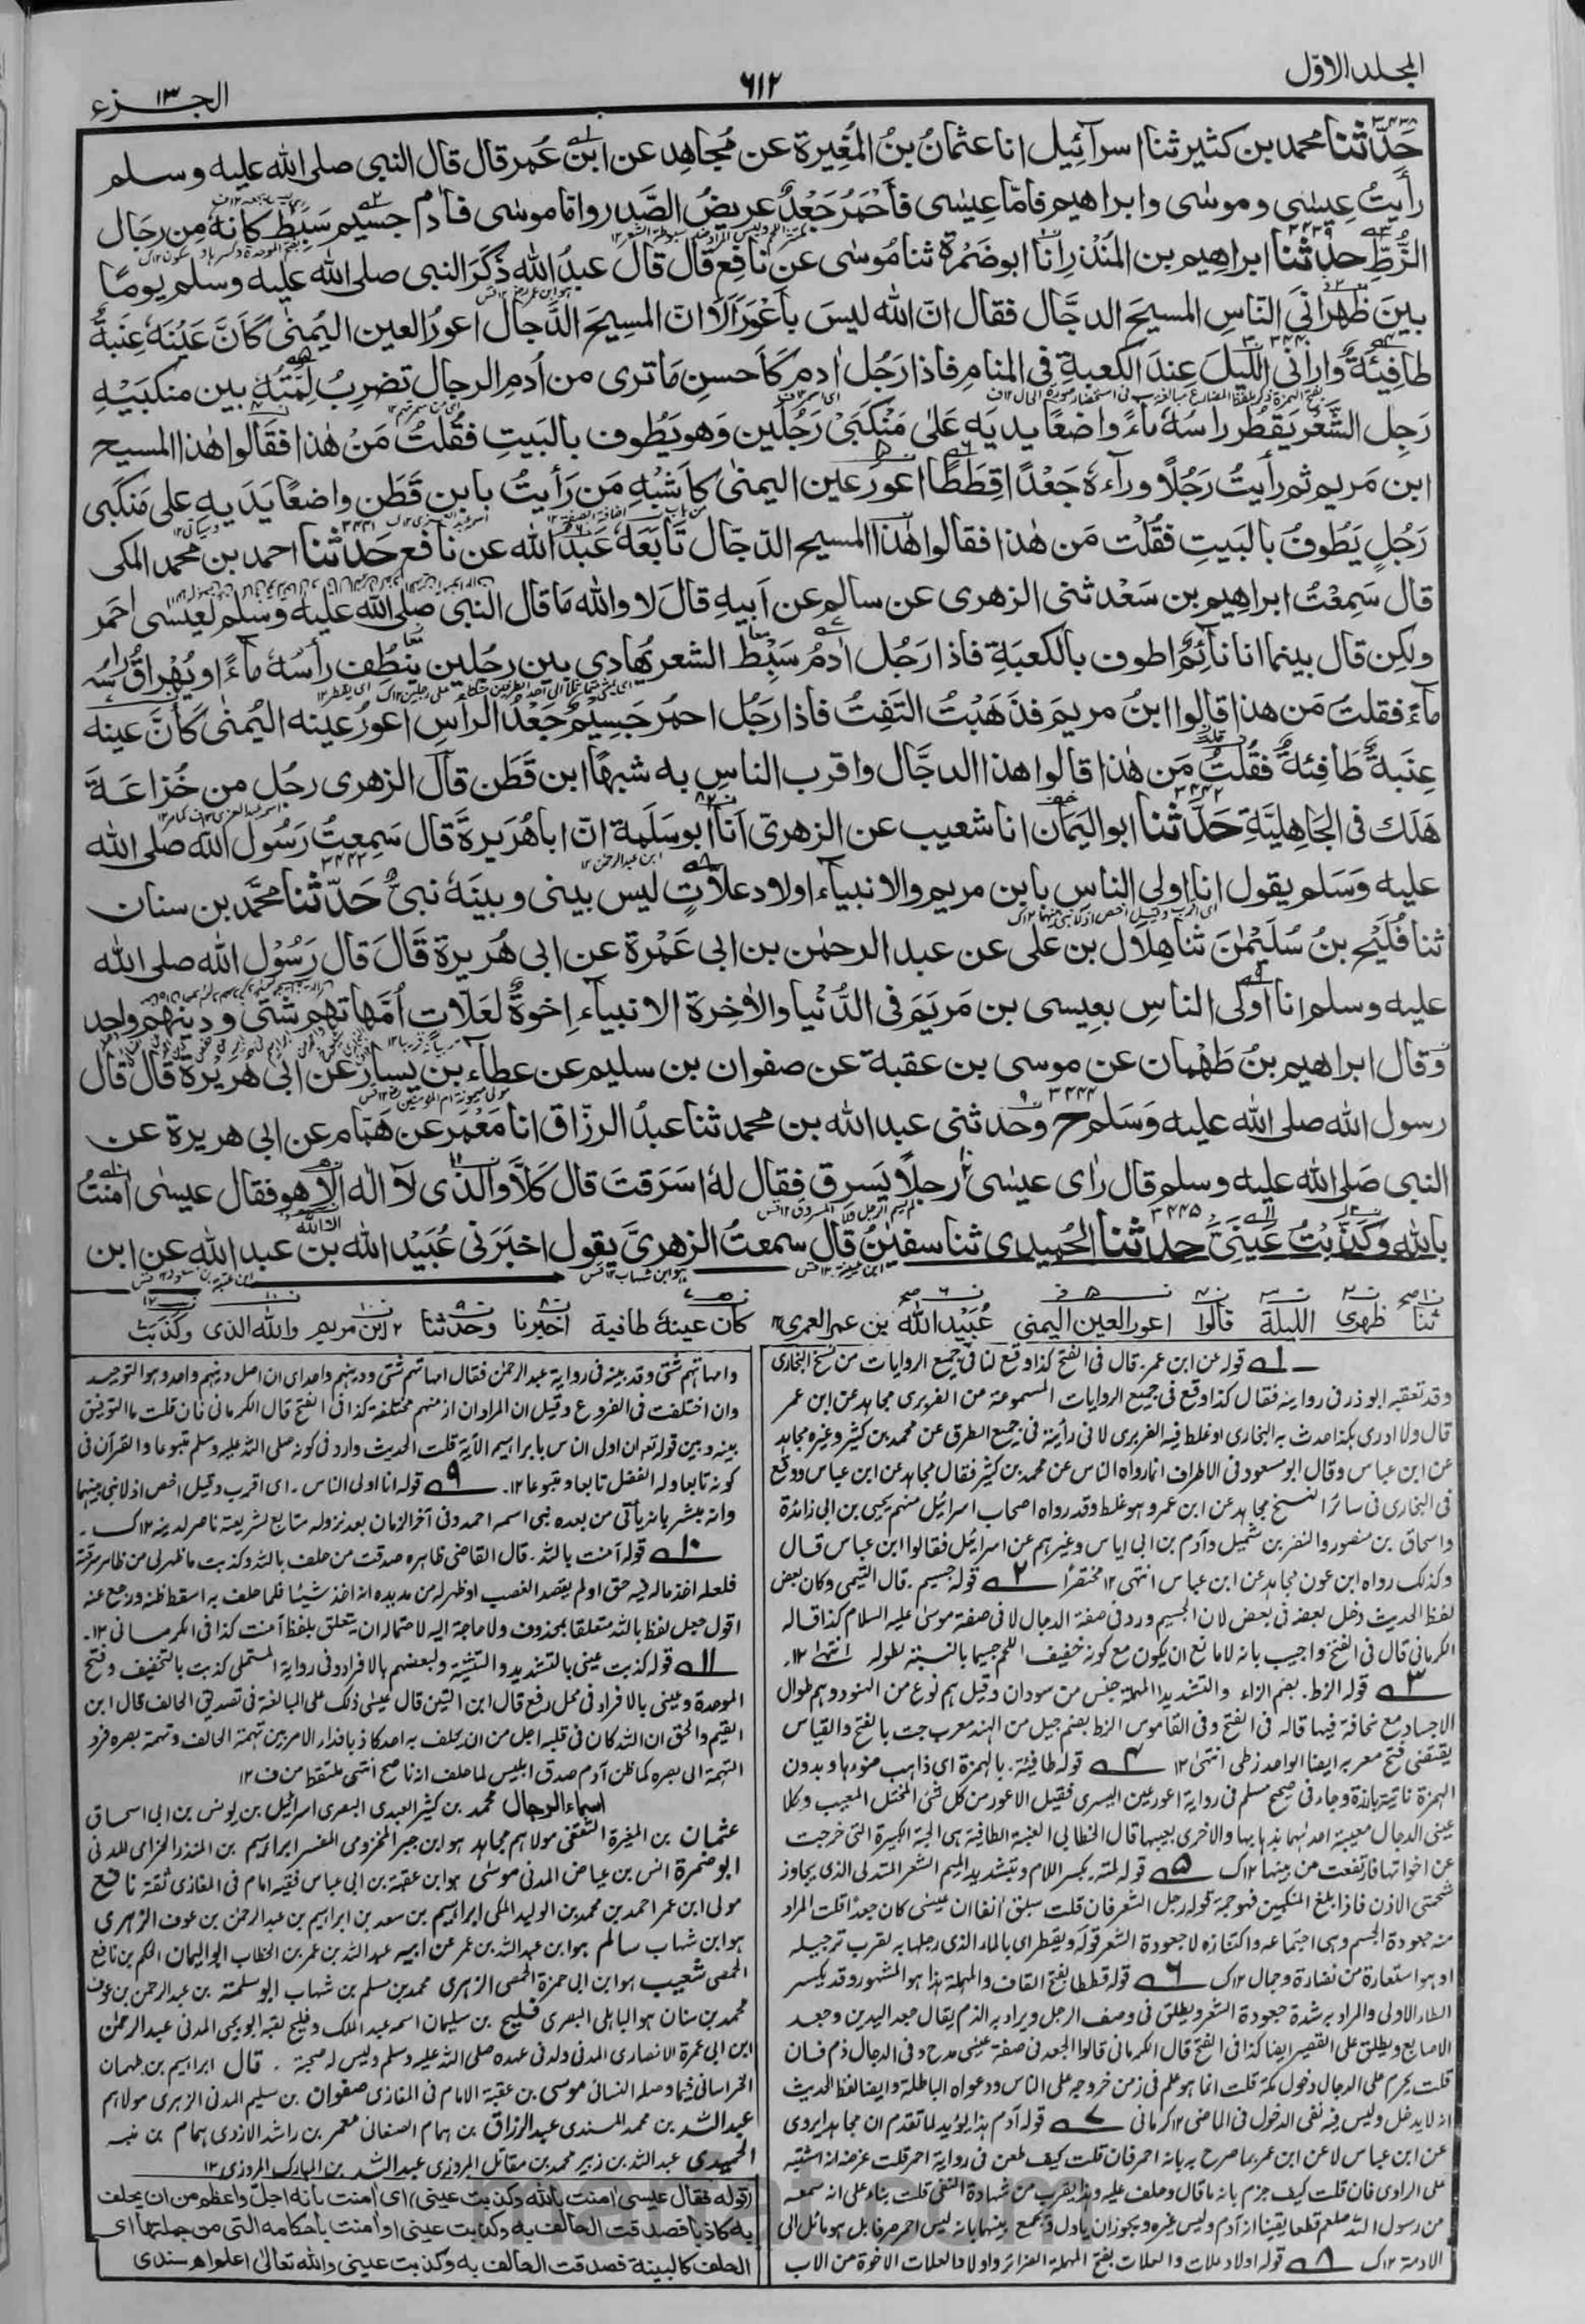 المجلد الاوّل
٦١٢
الجزء ١٣
٣٤٣٨
حَدّثنا محمد بن كثير ثنا اسرآئيل انا عثمانُ بنُ المُغِيرة عن مُجاهِد عن ابنِ عُمر قال قال النبى صلى الله عليه وسلم
رأيتُ عِيسٰى وموسٰى وابراهيم فامّا عِيسٰى فاَحْمَرُ جَعْدٌ عريضُ الصَّدر واما موسٰى فاٰدم جسيم سَبِطٌ كانهٗ مِن رجال
الزُّطِّ حدثنا ابراهيم بن المُنْذِر انا ابو ضَمْرة ثنا مُوسٰى عن نافِع قال قال عبدُ الله ذَكَرَ النبى صلى الله عليه وسلم يومًا
بينَ ظَهرانَىِ النّاسِ المسيحَ الدجَّال فقال انّ الله ليسَ باَعْوَرَ اَلَا انّ المسيحَ الدَّجال اعورُ العين اليُمنٰى كَاَنَّ عَيْنَهٗ عِنَبةٌ
طافِئَةٌ وارانى اللَّيلَ عِندَ الكعبةِ فى المنامِ فاذا رَجُل اٰدم كَاَحسنِ مَا ترى من اُدمِ الرجال تضرِبُ لِمَّتُهٗ بين منكبَيْهِ
رَجِل الشَّعْر يَقطُر راسُهٗ مآءً واضعًا يديهِ عَلىٰ مَنْكَبَىْ رَجُلَين وهو يَطُوف بالبَيتِ فقُلتُ مَنْ هٰذا فقالوا هٰذا المسيح
ابن مَريم ثم رأيتُ رَجُلًا ورآءهٗ جَعْدًا قِطَطًا اعورَ عين اليمنٰى كاَشْبَهِ مَن رَأيتُ بابنِ قَطَنٍ واضعًا يَدَيهِ على مَنكَبى
رَجُلٍ يَطُوفُ بالبَيتِ فقُلتُ مَن هٰذا فقالوا هٰذا المسيح الدّجّال تَابَعَهٗ عُبَيْدُ الله عن نافِع حَدّثنا احمد بن محمد المكى
قال سَمِعْتُ ابراهيم بن سَعْد ثنى الزهرى عن سالم عن اَبيهِ قالَ لا والله مَا قال النبى صلى الله عليه وسلم لعيسٰى احمَر
ولٰكِن قال بينما انا نآئِمٌ اطوف بالكعبَةِ فاذا رَجُل اٰدمُ سَبِطُ الشعر يُهادٰى بين رجُلين يَنْطُف رأسُهٗ مآءً او يُهْراقُ راسُهٗ
مآءً فقلتُ مَن هذا قالوا ابنُ مريمَ فذَهَبْتُ التَفِتُ فاذا رَجُل احمرُ جَسِيمٌ جَعْدُ الراس اعورُ عينِه اليُمنٰى كَاَنَّ عينه
عِنَبةٌ طَافِئةٌ فقُلتُ مَن هٰذا قالوا هذا الدجَّال واقرب الناسِ به شبهًا ابن قَطَن قال الزهرى رجُل من خُزاعَةَ
هَلَكَ فى الجَاهِليَّةِ حَدَّثنا ابو اليَمَان انا شعيب عن الزهرىّ اَنَا ابو سَلَمة انّ ابا هُرَيرةَ قال سَمِعتُ رَسُولَ الله صلى الله
عليه وَسَلم يقول انا اولى الناسِ بابنِ مريم والانبيآء اولاد عَلَّاتٍ ليس بينى وبينَهٗ نبىٌّ حَدّثنا محمَّد بن سنان
ثنا فُلَيْح بنُ سُلَيْمٰنَ ثنا هِلال بن على عن عبد الرحمٰن بن ابى عَمْرة عن ابى هُريرة قَالَ قال رَسُوْل الله صلى الله
عليه وسلم انا اَولَى الناسِ بعِيسى بن مَريَمَ فى الدُّنْيا والاٰخِرة الانبيآء اِخوةٌ لعَلّات اُمَّهاتهم شتّٰى ودينهم واحد
وَقال ابراهيم بنُ طَهْمان عن موسى بن عقبة عن صفوان بن سليم عن عطآء بن يسار عن ابى هريرة قال قال
رسول الله صلى الله عليه وَسَلم ح وحدثنى عبد الله بن محمد ثنا عبدُ الرزّاق انا مَعْمَر عن هَمّام عن ابى هريرة عن
النبى صَلى الله عليه وسلم قال رَاٰى عيسٰى رجلًا يَسرِق فقال لهٗ اسَرَقتَ قال كَلَّا والّذى لآ اله الا هو فقال عيسٰى اٰمنتُ
بالله وكَذَّبتُ عَينِىْ حدثنا الحُمِيدى ثنا سفيٰنُ قال سمعتُ الزهرىَّ يقول اخبَرَنى عُبَيْد الله بن عبد الله عن ابن
ثنا ظهرى الليلة قالوا اعور العين اليمنى عُبَيْد الله بن عمر العمرى كان عينهٗ طافية اخبرنا وحدثنا ابن مريم والله الذى وكذبت
١ قوله عن ابن عمر۔ قال فى الفتح كذا وقع لنا فى جميع الروايات من نسخ البخارى
وقد تعقبه ابوذر فى روايته فقال كذا وقع فى جميع الروايات المسموعة عن الفربرى مجاهد عن ابن عمر
قال ولا ادرى هكذا حدث به البخارى او غلط فيه الفربرى لانى رأيته فى جميع الطرق عن محمد بن كثير وغيره مجاهد
عن ابن عباس وقال ابو مسعود فى الاطراف انما رواه الناس عن محمد بن كثير فقال مجاهد عن ابن عباس ووقع
فى البخارى فى سائر النسخ مجاهد عن ابن عمر وهو غلط وقد رواه اصحاب اسرائيل منهم يحيى بن ابى زائدة
واسحاق بن منصور والنضر بن شميل وآدم بن ابى اياس وغيرهم عن اسرائيل فقالوا ابن عباس قال
وكذلك رواه ابن عون مجاهد عن ابن عباس انتهى ١٢ مختصرًا ٢ قوله جسيم۔ قال التيمى وكان بعض
لفظ الحديث دخل بعضه فى بعض لان الجسيم ورد فى صفة الدجال لا فى صفة موسىٰ عليه السلام كذا قاله
الكرمانى قال فى الفتح واجيب بانه لا مانع ان يكون مع كونه خفيف اللحم جسيما بالنسبة لطوله انتهٰى ١٢۔
٣ قوله الزط۔ بضم الزاء والتشديد المهملة جنس من سودان وقيل هم نوع من الهنود وهم طوال
الاجساد مع نحافة فيها قاله فى الفتح وفى القاموس الزط بضم جيل من الهند معرب جت بالفتح والقياس
يقتضى فتح معربه ايضا الواحد زطى انتهٰى ١٢ ٤ قوله طافيئة۔ بالهمزة اى ذاهب ضوءها وبدون
الهمزة ناتية بارزة وجاء فى صحيح مسلم فى رواية اعور عين اليسرى فقيل الاعور من كل شئ المختل المعيب وكلا
عينى الدجال معيبة احدٰهما بذهابها والاخرى بعيبها قال الخطابى العنبة الطافية هى الحبة الكبيرة التى خرجت
عن اخواتها فارتفعت من بينها ١٢ک ٥ قوله لمته۔ بكسر اللام وتشديد الميم الشعر المتدلى الذى يجاوز
شحمتى الاذن فاذا بلغ المنكبين فهو جمة قوله رجل الشعر فان قلت سبق انفا ان عيسى كان جعدًا قلت المراد
منه جعودة الجسم وهى اجتماعه واكتنازه لا جعودة الشعر قوله ويقطر اى بالماء الذى رجلها به لقرب ترجيله
او هو استعارة من نضارة وجمال ١٢ک ٦ قوله قططا بفتح القاف والمهملة هذا هو المشهور وقد يكسر
الطاء الاولى والمراد به شدة جعودة الشعر ويطلق فى وصف الرجل ويراد به الذم يقال جعد اليدين وجعد
الاصابع ويطلق على القصير ايضا كذا فى الفتح قال الكرمانى قالوا الجعد فى صفة عيسٰى مدح وفى الدجال ذم فان
قلت يحرم على الدجال دخول مكة قلت انما هو علم فى زمن خروجه على الناس ودعواه الباطلة وايضا لفظ الحديث
انه لا يدخل وليس فيه نفى الدخول فى الماضى ١٢ كرمانى ٧ قوله آدم هذا يؤيد لما تقدم ان مجاهد ايروى
عن ابن عباس لا عن ابن عمر بما صرح به بانه احمر فان قلت كيف طعن فى رواية احمر قلت عرضه انه اشتبه
على الراوى فان قلت كيف جزم بانه ما قال وحلف عليه وهذا يقرب من شهادة النفى قلت بناء على انه سمعه
من رسول الله صلعم قطعا يقينا انه آدم وليس غيره ويجوز ان ياول ويجمع بينهما بانه ليس احمر صرفا بل هو مائل الى
الادمة ١٢ک ٨ قوله اولاد علات والعلات بفتح المهملة الضرائر واولاد العلات الاخوة من الاب
وامهاتهم شتى وقد بينه فى رواية عبد الرحمٰن فقال امهاتهم شتى ودينهم واحد اى ان اصل دينهم واحد وهو التوحيد
وان اختلفت فى الفروع وقيل ان المراد ان ازمنهم مختلفة كذا فى الفتح قال الكرمانى فان قلت ما التوفيق
بينه وبين قوله تع ان اولى الناس بابراهيم الآية قلت الحديث وارد فى كونه صلى الله عليه وسلم متبوعا والقرآن فى
كونه تابعا وله الفضل تابعا ومتبوعا ١٢۔ ٩ قوله انا اولى الناس۔ اى اقرب وقيل اخص اذ لا نبى بينهما
وانه مبشر بانه يأتى من بعده نبى اسمه احمد وفى آخر الزمان بعد نزوله متابع لشريعته ناصر لدينه ١٢ک۔
١٠ قوله آمنت بالله۔ قال القاضى ظاهره صدقت من حلف بالله وكذبت ما ظهر لى من ظاهر سرقة
فلعله اخذ ماله فيه حق او لم يقصد الغصب او ظهر له من مد يده انه اخذ شيئا فلما حلف به اسقط ظنه ورجع عنه
اقول جعل لفظ بالله متعلقا بمحذوف ولا حاجة اليه لاحتمال ان يتعلق بلفظ آمنت كذا فى الكرمانى ١٢۔
١١ قوله كذبت عينى بالتشديد والتثنية ولبعضهم بالافراد وفى رواية المستملى كذبت بالتخفيف وفتح
الموحدة وعينى بالافراد فى محل رفع قال ابن التين قال عيسٰى ذلك على المبالغة فى تصديق الحالف قال ابن
القيم والحق ان الله كان فى قلبه اجل من ان يحلف به احد كاذبا فدار الامر بين تهمة الحالف وتهمة بصره فرد
التهمة الى بصره كما ظن آدم صدق ابليس لما حلف انه ناصح انتهى ملتقط من ف ١٢
اسماء الرجال محمد بن كثير العبدى البصرى اسرائيل بن يونس بن ابى اسحاق
عثمان بن المغيرة الثقفى مولاهم مجاهد هو ابن جبر المخزومى المفسر ابراهيم بن المنذر الحزامى المدنى
ابو ضمرة انس بن عياض المدنى موسٰى هو ابن عقبة بن ابى عياش فقيه امام فى المغازى ثقة نافع
مولى ابن عمر احمد بن محمد بن الوليد المكى ابراهيم بن سعد بن ابراهيم بن عبد الرحمٰن بن عوف الزهرى
هو ابن شهاب سالم هو ابن عبد الله بن عمر عن ابيه عبد الله بن عمر بن الخطاب ابو اليمان الحكم بن نافع
الحمصى شعيب هو ابن ابى حمزة الحمصى الزهرى محمد بن مسلم بن شهاب ابو سلمة بن عبد الرحمٰن بن عوف
محمد بن سنان هو الباهلى البصرى فليح بن سليمان اسمه عبد الملك وفليح لقبه ابو يحيى المدنى عبد الرحمٰن
ابن ابى عمرة الانصارى المدنى ولد فى عهده صلى الله عليه وسلم وليس له صحبة۔ قال ابراهيم بن طهمان
الخراسانى فيما وصله النسائى موسى بن عقبة الامام فى المغازى صفوان بن سليم المدنى الزهرى مولاهم
عبد الله بن محمد المسندى عبد الرزاق بن همام الصنعانى معمر بن راشد الازدى همام بن منبه
الحميدى عبد الله بن زبير محمد بن مقاتل المروزى عبد الله بن المبارك المروزى ١٢
(قوله فقال عيسى اٰمنت بالله وكذبت عينى) اى اٰمنت بأنه اجلّ واعظم من ان يحلف
به كاذبا فصدقت الحالف به وكذبت عينى او اٰمنت باحكامه التى من جملتها اى
الحلف كالبينة فصدقت الحالف به وكذبت عينى والله تعالٰى اعلم اهـ سندى